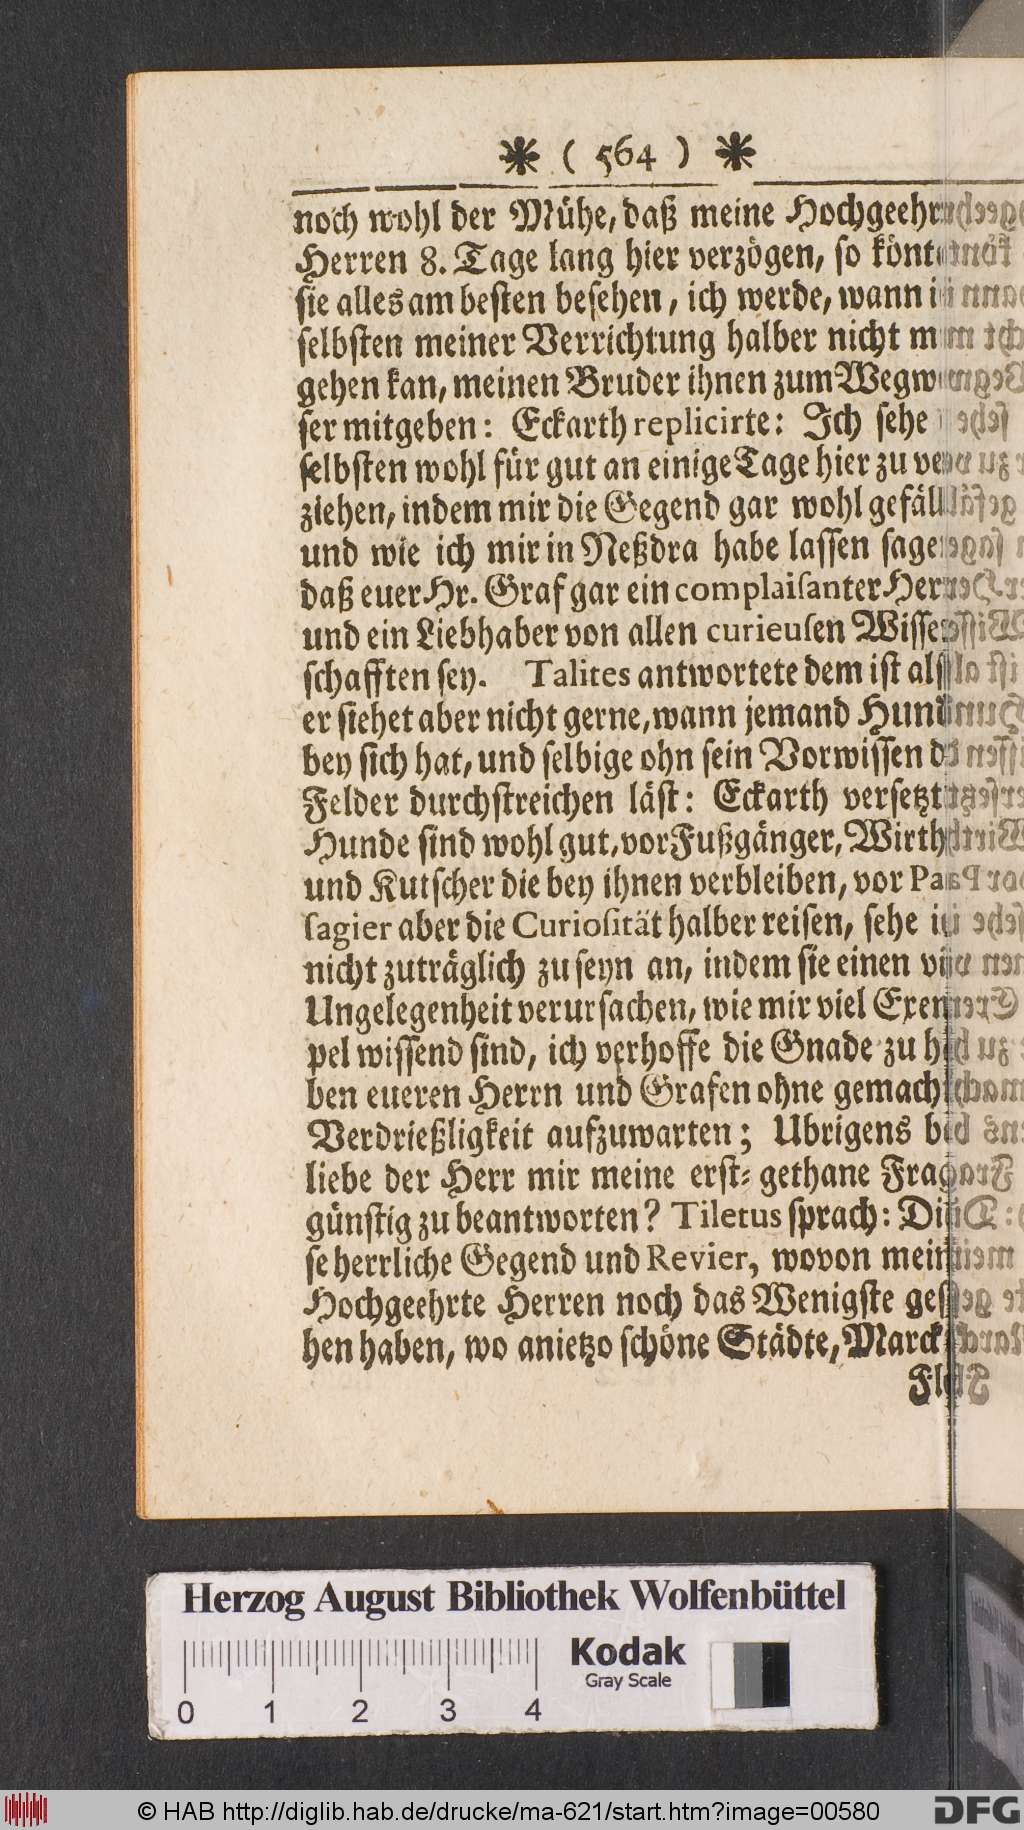 * ( 564 ) *
noch wohl der Mühe, daß meine Hochgeehr
Herren 8. Tage lang hier verzögen, so könt
sie alles am besten besehen, ich werde, wann i
selbsten meiner Verrichtung halber nicht m
gehen kan, meinen Bruder ihnen zum Wegw
ser mitgeben: Eckarth replicirte: Ich sehe
selbsten wohl für gut an einige Tage hier zu ve
ziehen, indem mir die Gegend gar wohl gefäll
und wie ich mir in Neßdra habe lassen sage
daß euer Hr. Graf gar ein complaisanter Her
und ein Liebhaber von allen curieusen Wisse
schafften sey. Talites antwortete dem ist als
er siehet aber nicht gerne, wann jemand Hun
bey sich hat, und selbige ohn sein Vorwissen d
Felder durchstreichen läst: Eckarth versetzt
Hunde sind wohl gut, vor Fußgänger, Wirth
und Kutscher die bey ihnen verbleiben, vor Pas
sagier aber die Curiosität halber reisen, sehe i
nicht zuträglich zu seyn an, indem sie einen vi
Ungelegenheit verursachen, wie mir viel Exem
pel wissend sind, ich verhoffe die Gnade zu h
ben eueren Herrn und Grafen ohne gemach
Verdrießligkeit aufzuwarten; Ubrigens be
liebe der Herr mir meine erst-gethane Frag
günstig zu beantworten? Tiletus sprach: Di
se herrliche Gegend und Revier, wovon mein
Hochgeehrte Herren noch das Wenigste ges
hen haben, wo anietzo schöne Städte, Marck
Fl
Herzog August Bibliothek Wolfenbüttel
Kodak
Gray Scale
0 1 2 3 4
© HAB http://diglib.hab.de/drucke/ma-621/start.htm?image=00580
DFG